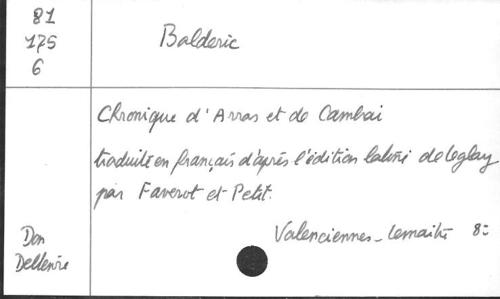 81
175
6
Balderic
Chronique d'Arras et de Cambai
traduite en français d'après l'édition latine de leglay
par Faverot et Petit.
Valenciennes - Lemaitre 8=
Don